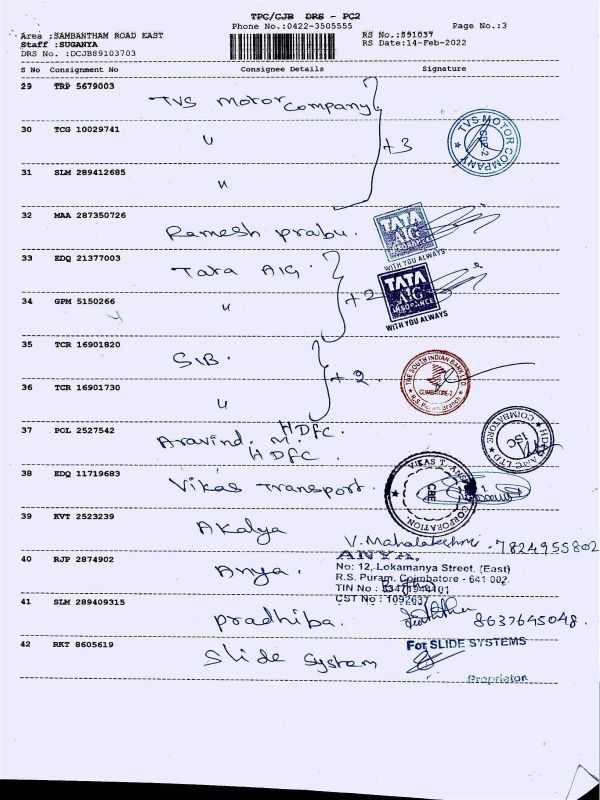 TPC/CJB DRS - PC2
Phone No.:0422-3505555
Page No.:3
Area :SAMBANTHAM ROAD EAST
RS No.:891037
Staff :SUGANYA
RS Date:14-Feb-2022
DRS No. :DCJB89103703
S No Consignment No Consignee Details Signature
29 TRP 5679003
TVS Motor Company
30 TCG 10029741
"
+3
TVS MOTOR COMPANY
CBE-2
31 SLM 289412685
"
32 MAA 287350726
Ramesh prabu.
TATA
AIG
INSURANCE
WITH YOU ALWAYS
33 EDQ 21377003
Tata AIG.
TATA
AIG
INSURANCE
WITH YOU ALWAYS
34 GPM 5150266
"
+2
35 TCR 16901820
SIB.
+2.
THE SOUTH INDIAN BANK LTD
COIMBATORE-2
R.S. Puram Branch
36 TCR 16901730
"
37 POL 2527542
Aravind. M. HDFC.
HDFC.
COIMBATORE
38 EDQ 11719683
Vikas Transport.
VIKAS
CORPORATION
CBE
39 KVT 2523239
Akalya
V. Mahalakshmi - 7824955802
40 RJP 2874902
Anya.
ANYA.
No: 12, Lokamanya Street. (East)
R.S. Puram, Coimbatore - 641 002.
TIN No :
CST No : 1092637
41 SLM 289409315
pradhiba.
8637645048.
42 RKT 8605619
Slide System
For SLIDE SYSTEMS
Proprietor